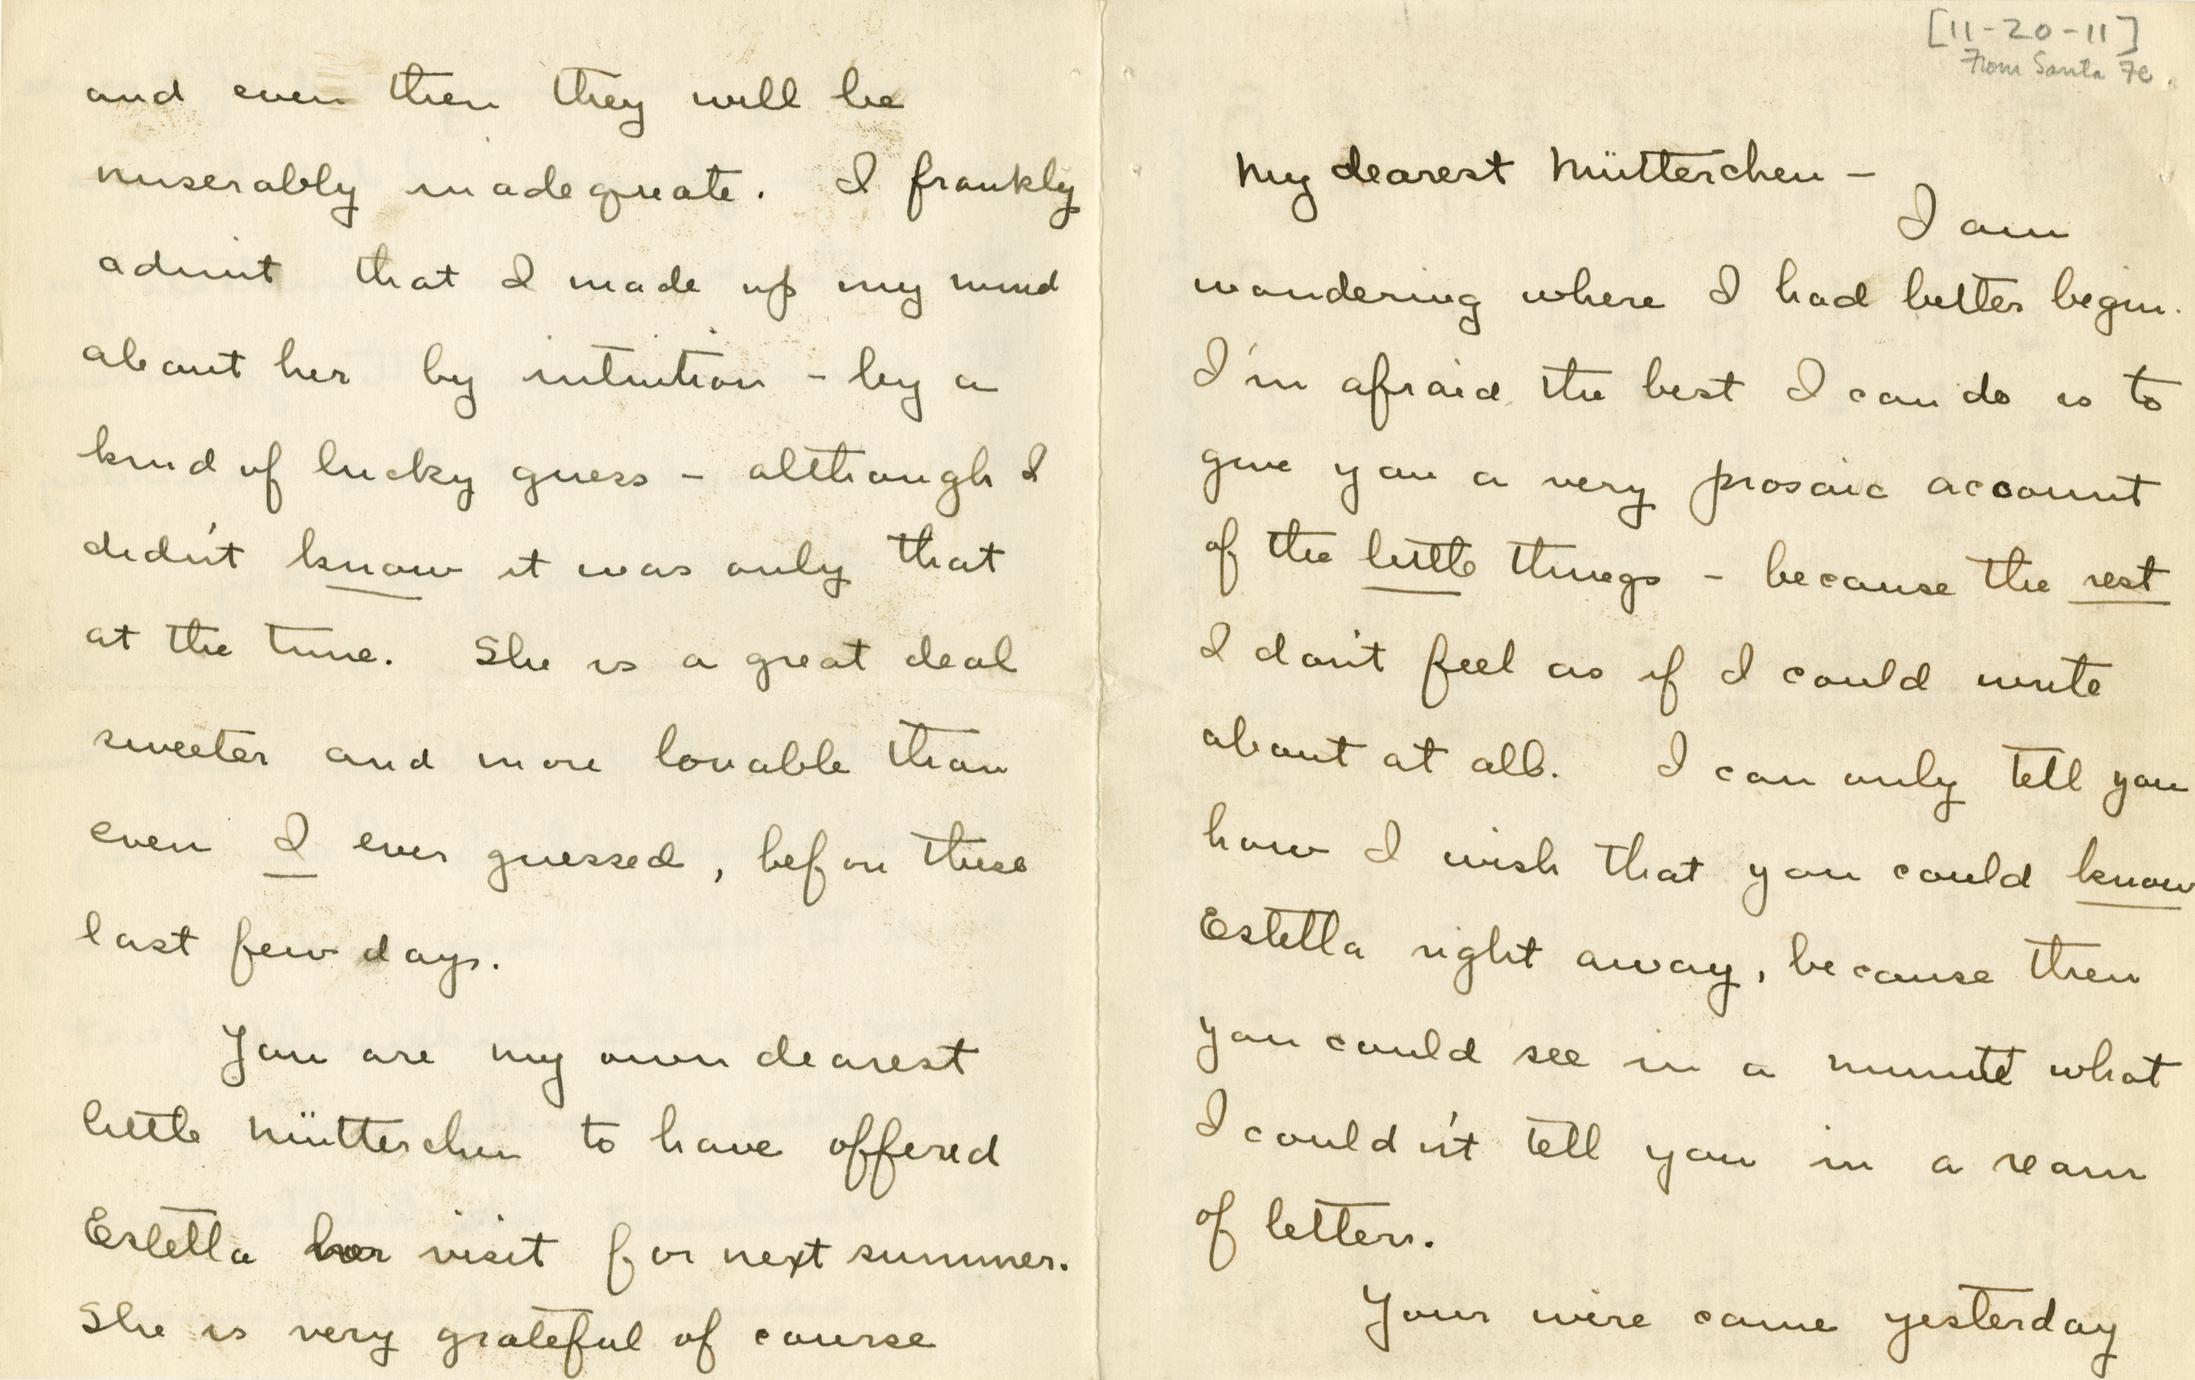 [11-20-11]
From Santa Fe.
My dearest Mütterchen –
I am
wondering where I had better begin.
I'm afraid the best I can do is to
give you a very prosaic account
of the little things – because the rest
I don't feel as if I could write
about at all. I can only tell you
how I wish that you could know
Estella right away, because then
you could see in a minute what
I couldn't tell you in a ream
of letters.
Your wire came yesterday
and even then they will be
miserably inadequate. I frankly
admit that I made up my mind
about her by intuition – by a
kind of lucky guess – although I
didn't know it was only that
at the time. She is a great deal
sweeter and more lovable than
even I ever guessed, before these
last few days.
You are my own dearest
little Mütterchen to have offered
Estella her visit for next summer.
She is very grateful of course